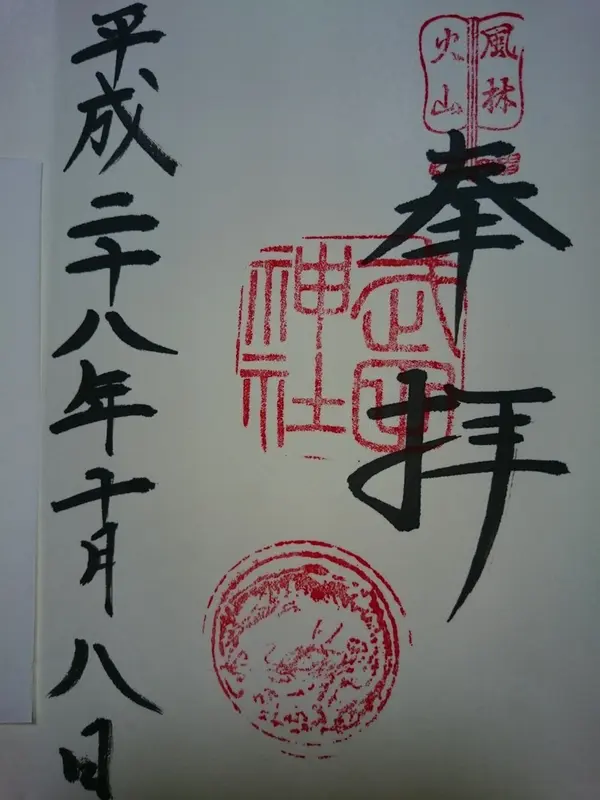 風林
火山
奉拝
武田
神社
平成二十八年十月八日